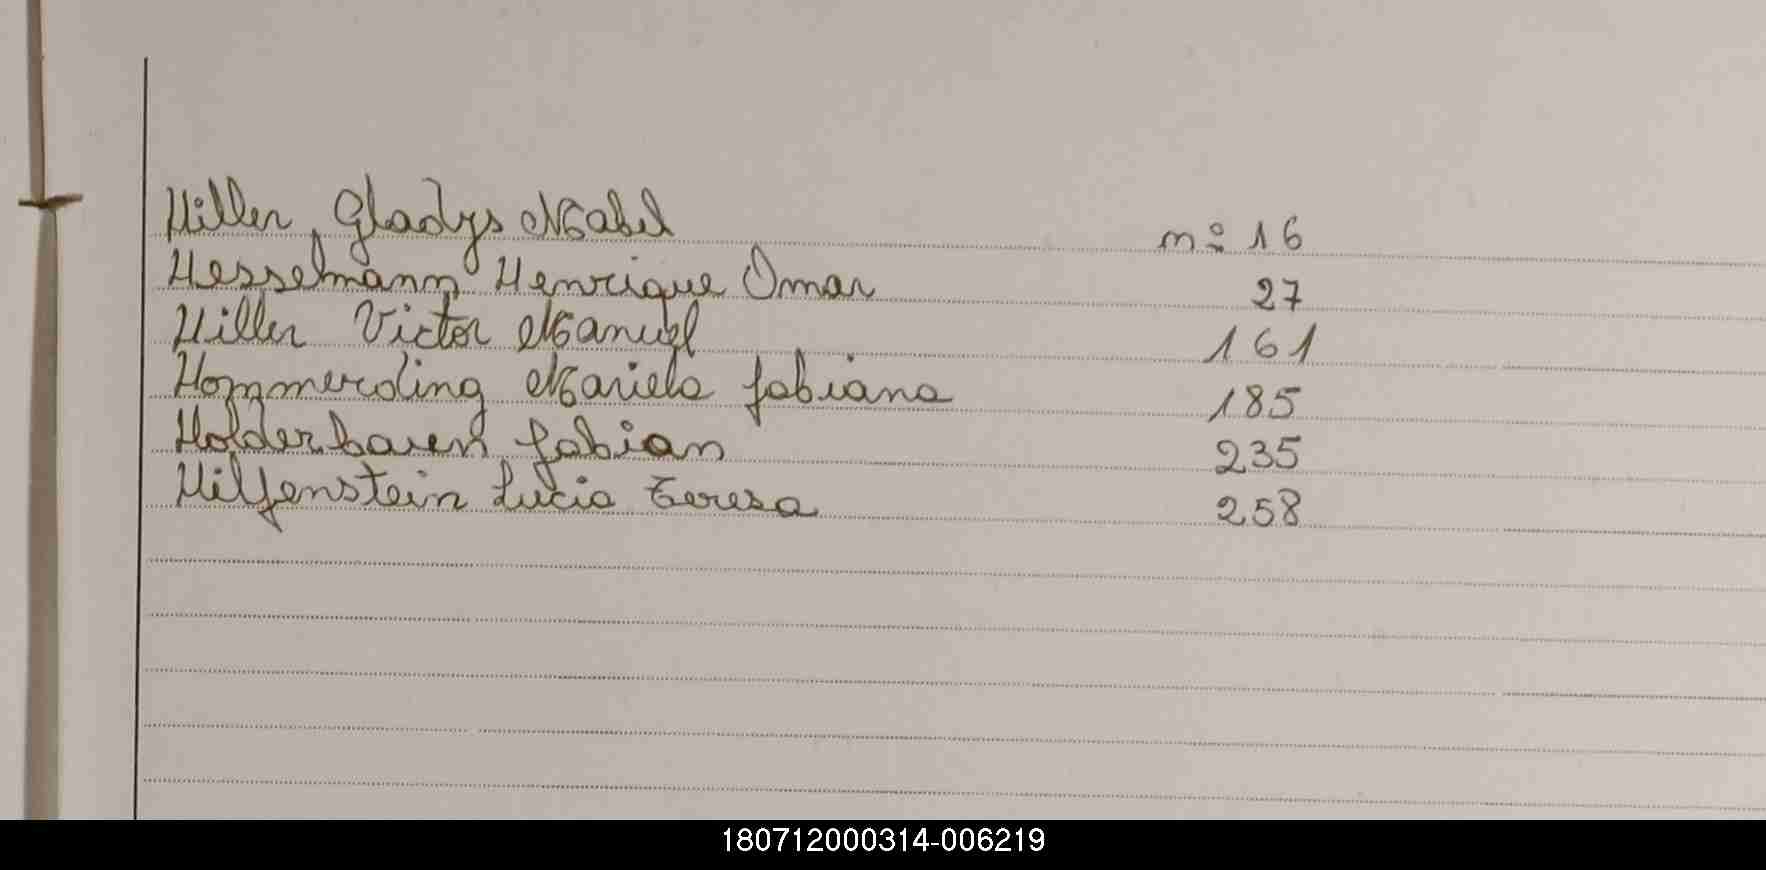 Hiller, Gladys Mabel nº 16
Hesselmann Henrique Omar 27
Hiller Victor Manuel 161
Hommerding Mariela Fabiana 185
Holderbauen Fabian 235
Hilfenstein Lucia Teresa 258
180712000314-006219